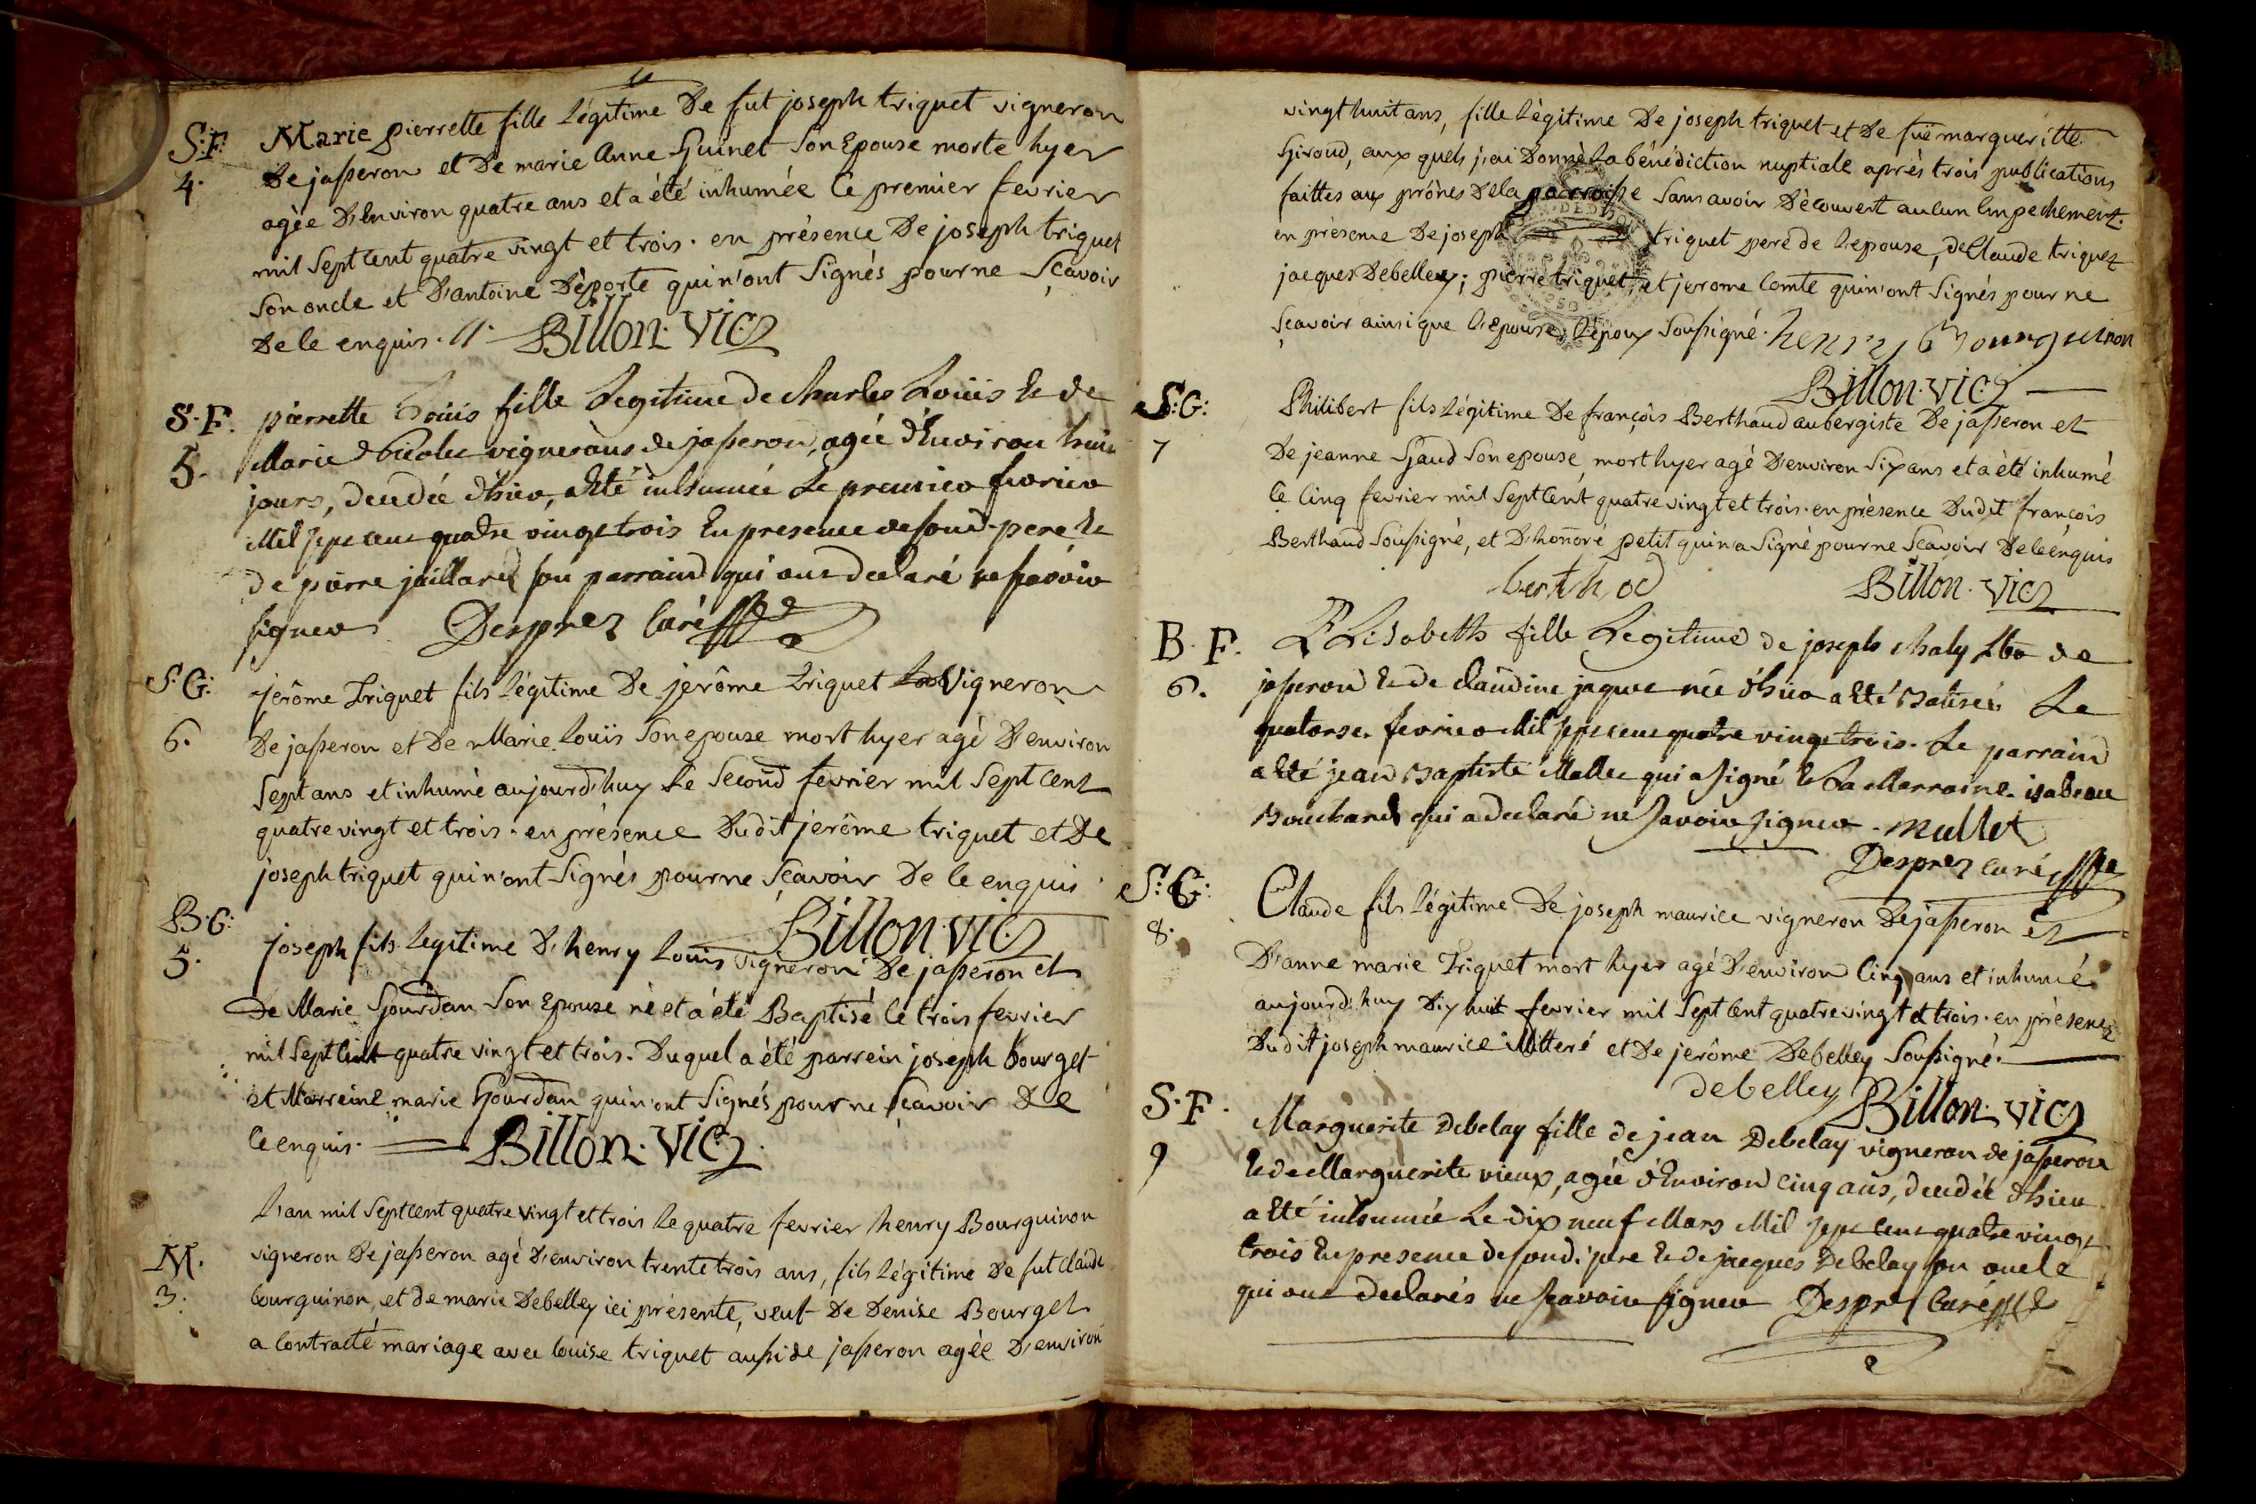 S: F:
4.
Marie pierrette fille légitime De fut joseph triquet vigneron
De jasseron et De marie Anne Guinet Son Epouse morte hyer
agèe D'Environ quatre ans et a été inhumée le premier fevrier
mil Sept Cent quatre vingt et trois. en présence De joseph triquet
Son oncle et D'antoine Déporte qui n'ont Signés pour ne Sçavoir
De ce enquis. //. Billon. vic.
S. F.
5.
pierrette Louis fille Legitime de charles Louis & de
Marie vignerons de jasseron, agée d'Environ huit
jours, decedée d'hier, a Eté inhumée Le premier fevrier
Mil sept cent quatre vingt trois En presence de sond. pere &
de pierre jaillard son parraind qui ont declaré ne savoir
signer Desprez Curé
S. G:
6.
jérôme Triquet fils légitime De jerôme Triquet Vigneron
De jasseron et De Marie Loüis Son epouse mort hyer agé D'environ
Sept ans et inhumé aujourd'huy Le Second fevrier mil Sept Cent
quatre vingt et trois. en présence Dudit jerôme triquet et De
joseph triquet qui n'ont Signés pour ne Sçavoir De ce enquis.
Billon. vic.
B. G:
5.
joseph fils legitime D'henry Louis vigneron De jasseron et
De Marie Gourdan Son Epouse né et a été Baptisé le trois fevrier
mil Sept Cent quatre vingt et trois. Duquel a été parrein joseph bourget
et Marreine marie Gourdan qui n'ont Signés pour ne Sçavoir De
ce enquis. Billon. vic.
M.
3.
L'an mil Sept Cent quatre vingt et trois le quatre fevrier henry Bourguinon
vigneron De jasseron agé D'environ trente trois ans, fils légitime De fut claude
bourguinon, et de marie Debelley ici présente, veuf De Denise Bourget
a Contracté mariage avec louise triquet aussi de jasseron agée D'environ
vingt huit ans, fille légitime De joseph triquet et De fuë margueritte
Giroud, aux quels j'ai Donné La bénédiction nuptiale après trois publications
faittes aux prônes De la parroisse Sans avoir Découvert aucun Empechement.
en présence De joseph triquet pere de l'epouse, De Claude triquet
jacques Debelley; pierre triquet, et jerome Comte qui n'ont Signés pour ne
Sçavoir ainsi que l'epouse, l'époux Soussigné. henry Bourguinon
Billon. vic.
S: G:
7
Philibert fils légitime De françois Berthaud aubergiste De jasseron et
De jeanne Gaud Son epouse, mort hyer agé D'environ Six ans et a été inhumé
le Cinq fevrier mil Sept Cent quatre vingt et trois. en présence Dudit françois
Berthaud Soussigné, et D'honnoré petit qui n'a Signé pour ne Scavoir De ce enquis
berthod Billon. vic.
B. F.
6.
Elisabeth fille Legitime de joseph Maly de
jasseron & de claudine jaque née d'hier a Eté Batisée Le
quatorse fevrier Mil sept cent quatre vingt trois. Le parraind
a Eté jean Baptiste Mallet qui a signé & La Marraine isabeau
Bouchard qui a declaré ne savoir signer. mallet
Desprez curé
S: G:
8.
Claude fils légitime De joseph maurice vigneron De jasseron Et
D'anne marie Triquet mort hyer agé D'environ Cinq ans et inhumé
aujourd'huy Dix huit fevrier mil Sept Cent quatre vingt et trois. en présence
Dudit joseph maurice illitteré et De jerôme Debelley Soussigné.
debelley Billon. vic.
S. F.
9
Marguerite Debelay fille de jean Debelay vigneron de jasseron
& de Marguerite vieux, agée d'Environ cinq ans, decedée d'hier
a Eté inhumée Le dix neuf Mars Mil sept cent quatre vingt
trois En presence de sond. pere & de jacques Debelay son oncle
qui ont declarés ne scavoir signer Desprez Curé